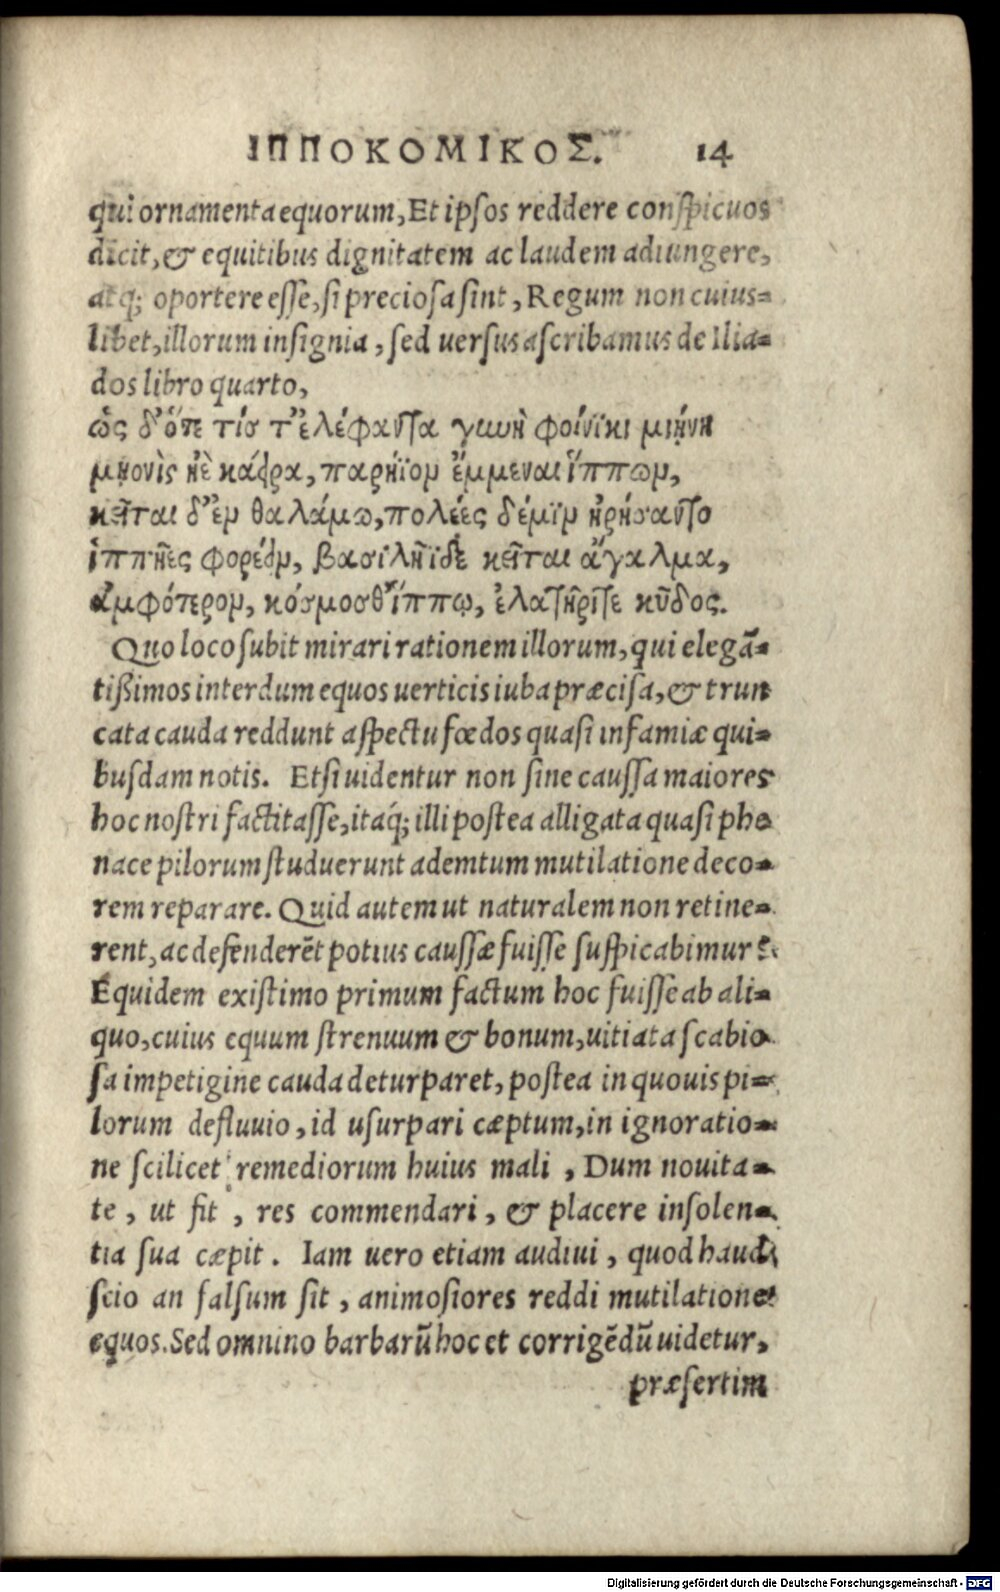 ΙΠΠΟΚΟΜΙΚΟΣ. 14
qui ornamenta equorum, Et ipsos reddere conspicuos
dicit, & equitibus dignitatem ac laudem adiungere,
atq; oportere esse, si preciosa sint, Regum non cuius=
libet, illorum insignia, sed uersus ascribamus de Ilia=
dos libro quarto,
ὡς δ' ὅτε τίσ τ' ἐλέφαντα γυνὴ φοίνικι μιήνη
μῃονὶς ἠὲ κάειρα, παρήϊον ἔμμεναι ἵππων,
κεῖται δ' ἐν θαλάμω, πολέες δέ μιν ἠρήσαντο
ἱππῆες φορέειν, βασιλῆϊ δὲ κεῖται ἄγαλμα,
ἀμφότερον, κόσμοσ θ' ἵππῳ, ἐλατῆρί τε κῦδος.
Quo loco subit mirari rationem illorum, qui elegã=
tißimos interdum equos uerticis iuba præcisa, & trun
cata cauda reddunt aspectu fœdos quasi infamiæ qui=
busdam notis. Etsi uidentur non sine caussa maiores
hoc nostri factitasse, itaq́; illi postea alligata quasi phe
nace pilorum studuerunt ademtum mutilatione deco=
rem reparare. Quid autem ut naturalem non retine=
rent, ac defenderẽt potius caussæ fuisse suspicabimur?
Equidem existimo primum factum hoc fuisse ab ali=
quo, cuius equum strenuum & bonum, uitiata scabio
sa impetigine cauda deturparet, postea in quouis pi=
lorum defluuio, id usurpari cæptum, in ignoratio=
ne scilicet remediorum huius mali, Dum nouita=
te, ut fit, res commendari, & placere insolen=
tia sua cæpit. Iam uero etiam audiui, quod haud
scio an falsum sit, animosiores reddi mutilatione
equos. Sed omnino barbarũ hoc et corrigẽdũ uidetur,
præsertim
Digitalisierung gefördert durch die Deutsche Forschungsgemeinschaft - DFG